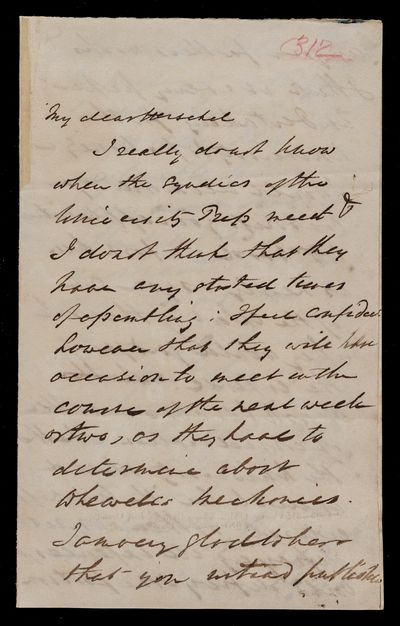 312
My dear Herschel
I really do not know
when the Syndics of the
University Press meet &
I do not think that they
have any stated times
of assembling: I feel confident
however that they will have
occasion to meet in the
course of the next week
or two, as they have to
determine about
Whewell's Mechanics.
I am very glad to hear
that you intend publishing